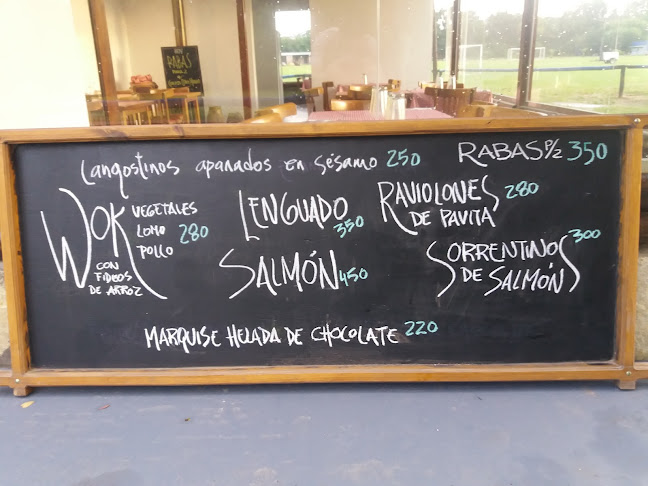 RABAS
Langostinos apanados en sésamo 250
RABAS P/2 350
WOK
VEGETALES
LOMO
POLLO
280
CON
FIDEOS
DE ARROZ
LENGUADO
350
SALMÓN 450
RAVIOLONES 280
DE PAVITA
SORRENTINOS 300
DE SALMÓN
MARQUISE HELADA DE CHOCOLATE 220